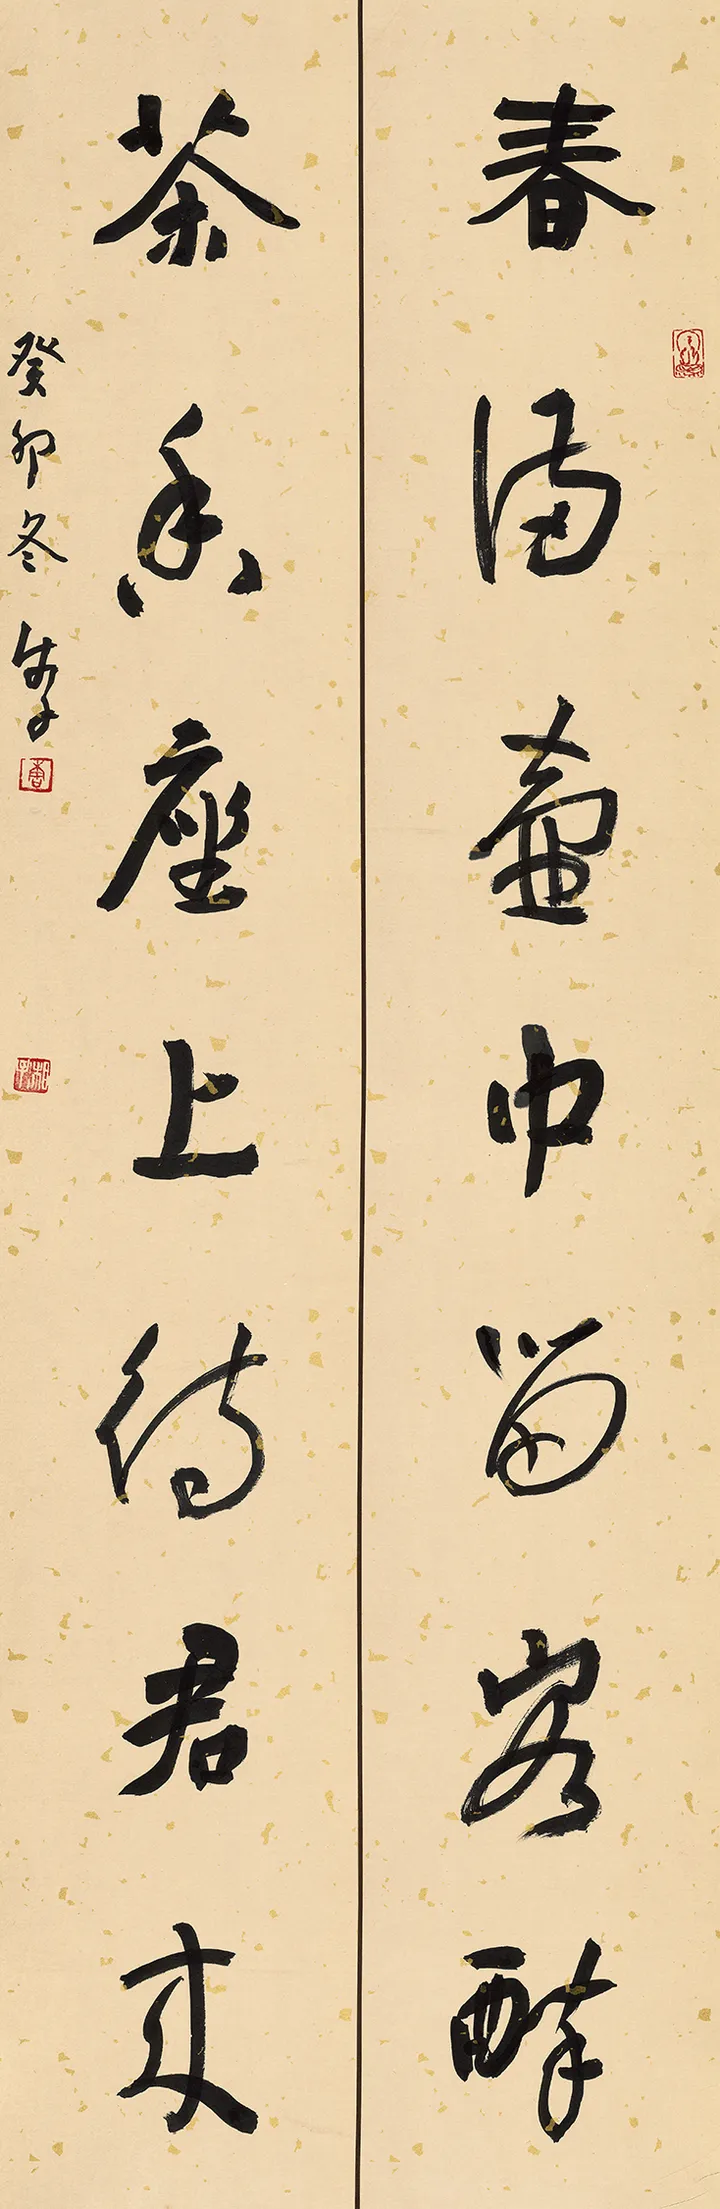 春满壶中留客醉
茶香座上待君来
癸卯冬